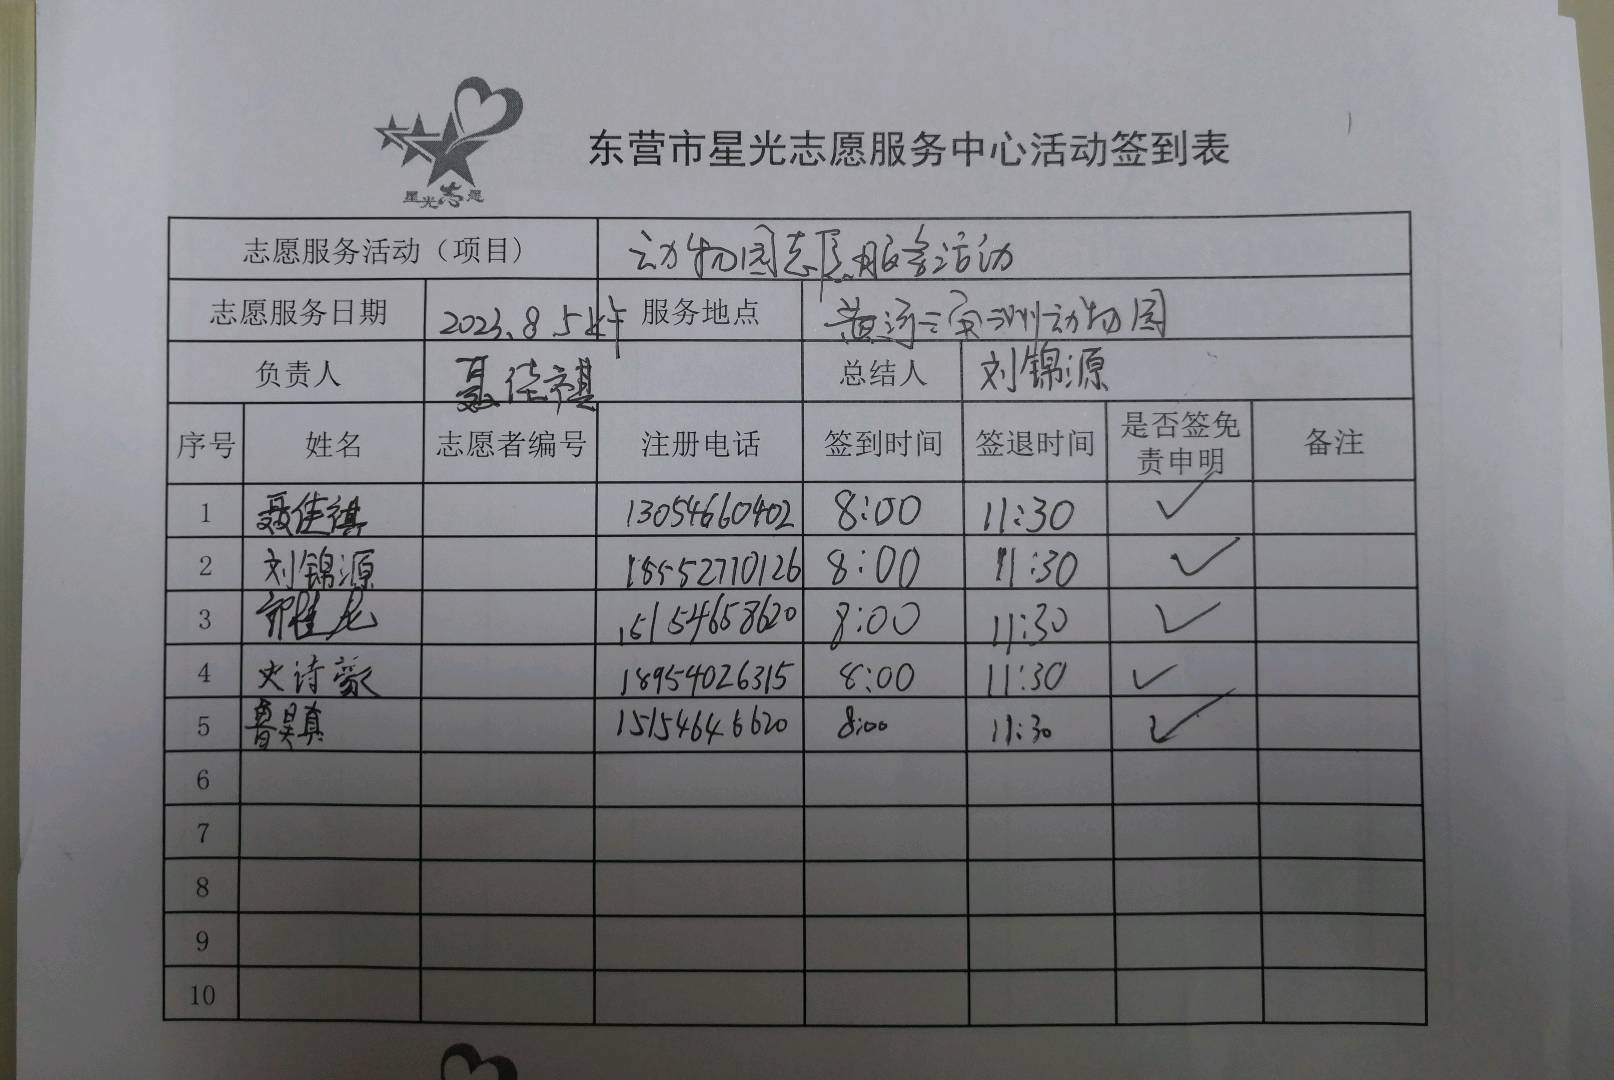 星光志愿
东营市星光志愿服务中心活动签到表
志愿服务活动（项目） 动物园志愿服务活动
志愿服务日期 2023.8.5上午 服务地点 黄河三角洲动物园
负责人 聂佳祺 总结人 刘锦源
序号 姓名 志愿者编号 注册电话 签到时间 签退时间 是否签免责申明 备注
1 聂佳祺 13054660402 8:00 11:30 ✓
2 刘锦源 18552710126 8:00 11:30 ✓
3 15154658620 8:00 11:30 ✓
4 史诗豪 18954026315 8:00 11:30 ✓
5 鲁昊真 15154646620 8:00 11:30 ✓
6
7
8
9
10